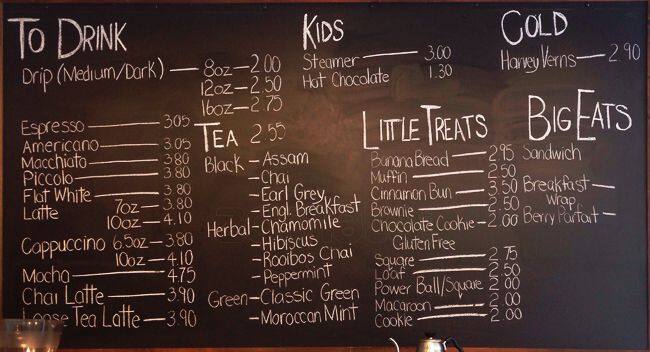 TO DRINK
Drip (Medium/Dark) — 8oz — 2.00
12oz — 2.50
16oz — 2.75
Espresso — 3.05
Americano — 3.05
Macchiato — 3.80
Piccolo — 3.80
Flat White — 3.80
Latte 7oz — 3.80
10oz — 4.10
Cappuccino 6.5oz — 3.80
10oz — 4.10
Mocha — 4.75
Chai Latte — 3.90
Loose Tea Latte — 3.90
KIDS
Steamer — 3.00
Hot Chocolate 1.30
TEA 2.55
Black — Assam
— Chai
— Earl Grey
— Engl. Breakfast
Herbal — Chamomile
— Hibiscus
— Rooibos Chai
— Peppermint
Green — Classic Green
— Moroccan Mint
LITTLE TREATS
Banana Bread — 2.95
Muffin — 2.50
Cinnamon Bun — 3.50
Brownie — 2.50
Chocolate Cookie — 2.00
Gluten Free
Square — 2.75
Loaf — 2.50
Power Ball/Square 2.00
Macaroon — 2.00
Cookie — 2.00
COLD
Harvey Verns — 2.90
BIG EATS
Sandwich
Breakfast —
Wrap
Berry Parfait —